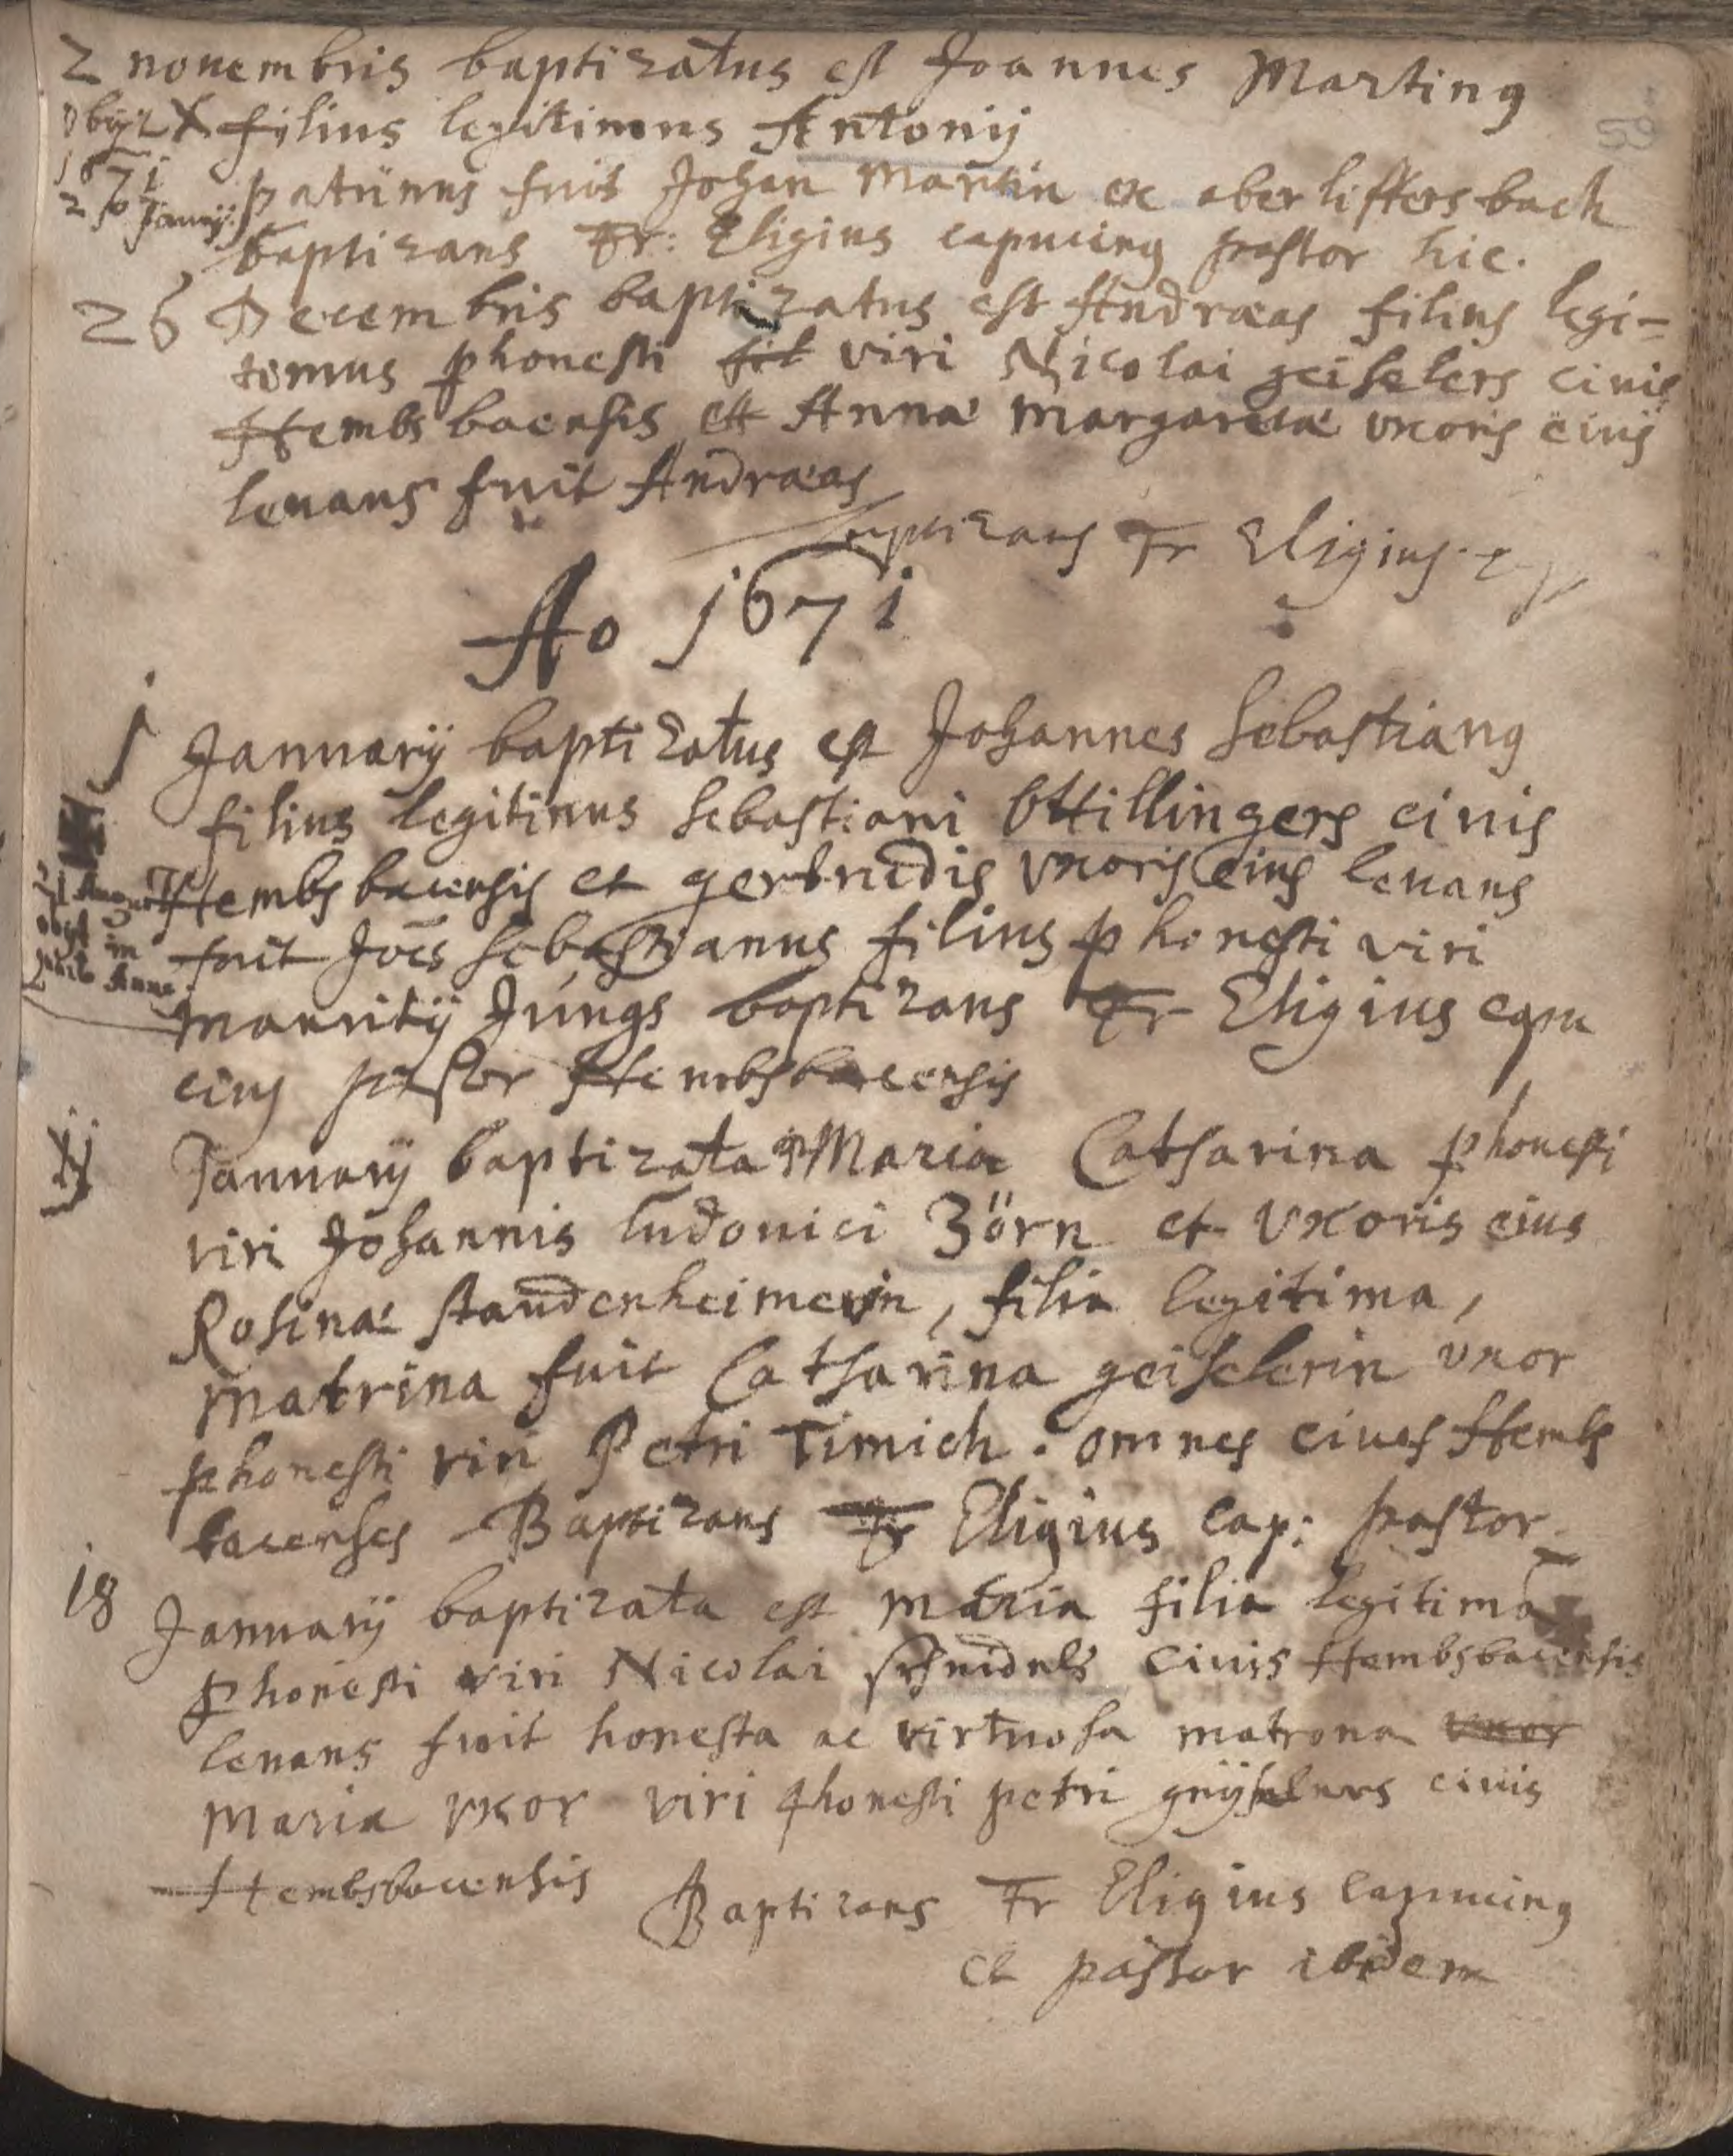 59
2 nouembris baptizatus est Joannes Marting
obijt X filius legitimus Antonij
1671
2do Januarij
patrinus fuit Johan Martin ex aberliffersbach
baptizans Fr: Eligius capucing pastor hic.
26 Decembris baptizatus est Andræas filius legi-
timus phonesti viri Nicolai geiselers ciuis
Hembsbacensis et Annæ margaretæ vxoris eius
leuans fuit Andræas
baptizans Fr Eligius
Ao 1671
1 Januarij baptizatus est Johannes Sebastiang
filius legitimus Sebastiani Ottillingers ciuis
Hembsbacensis et gertrudis vxoris eius leuans
21
obijt in
Anna
fuit Joēs Sebastianus filius phonesti viri
mauritij Jungs baptizans Fr Eligius capu
cing pastor Hembsbacensis
ij Januarij baptizata Maria Catharina phonesti
viri Johannis ludouici Zörn et vxoris eius
Rosinæ staudenheimerin, filia legitima,
matrina fuit Catharina geiselerin vxor
phonesti viri Petri Timich. omnes ciues Hembs
bacenses Baptizans Fr Eligius cap: pastor
18 Januarij baptizata est maria filia legitima
phonesti viri Nicolai schnidels ciuis Hembsbacensis
leuans fuit honesta ac virtuosa matrona vxor
Maria vxor viri phonesti petri ciuis
Hembsbacensis Baptizans Fr Eligius capucing
et pastor ibidem